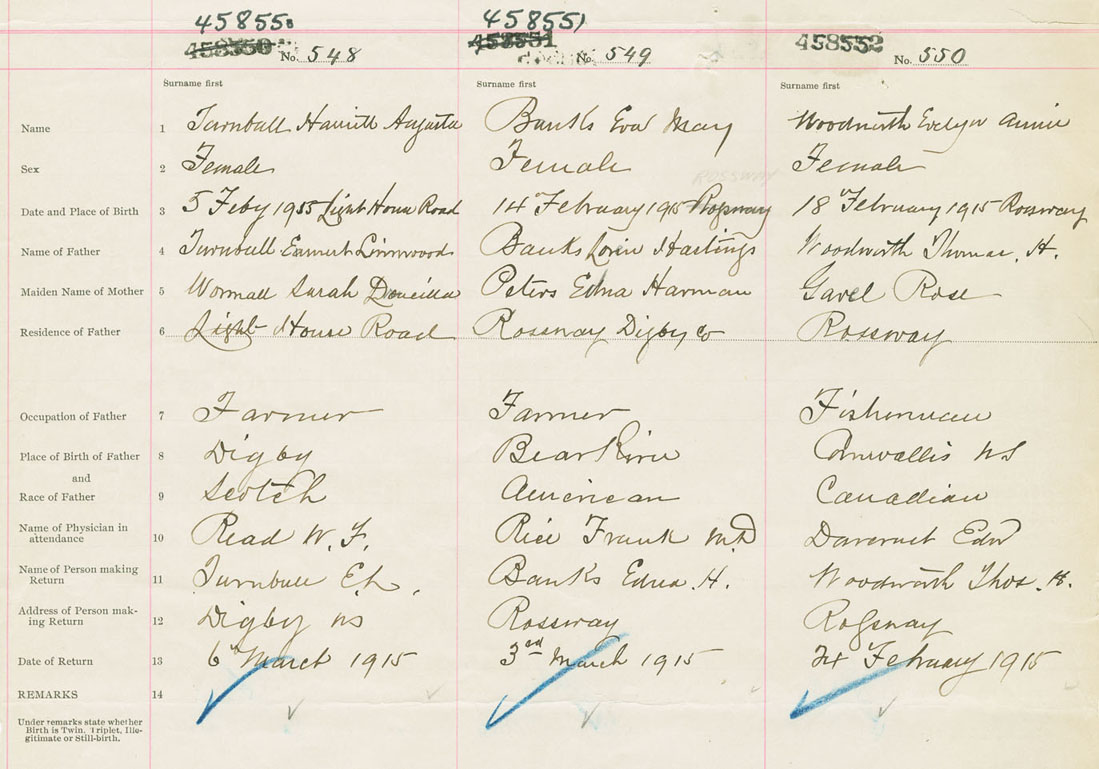 458550 458551
458550 No. 548 458551 No. 549 458552 No. 550
Surname first Surname first Surname first
Name 1 Turnball Harriett Augusta Banks Eva May Woodworth Evelyn Annie
Sex 2 Female Female Female
ROSSWAY
Date and Place of Birth 3 5 Feby 1915 Light House Road 14 February 1915 Rossway 18 February 1915 Rossway
Name of Father 4 Turnball Emmert Linnwood Banks Loren Hastings Woodworth Thomas. H.
Maiden Name of Mother 5 Wormall Sarah Peters Edna Harman Gavel Rose
Residence of Father 6 Light House Road Rossway Digby Co Rossway
Occupation of Father 7 Farmer Farmer Fisherman
Place of Birth of Father 8 Digby Bear River Cornwallis NS
and
Race of Father 9 Scotch American Canadian
Name of Physician in
attendance 10 Read W. F. Rice Frank M.D Edw
Name of Person making
Return 11 Turnbull E.L. Banks Edna H. Woodworth Thos. H.
Address of Person mak-
ing Return 12 Digby NS Rossway Rossway
Date of Return 13 6th March 1915 3rd March 1915 24 February 1915
REMARKS 14
Under remarks state whether
Birth is Twin, Triplet, Ille-
gitimate or Still-birth.